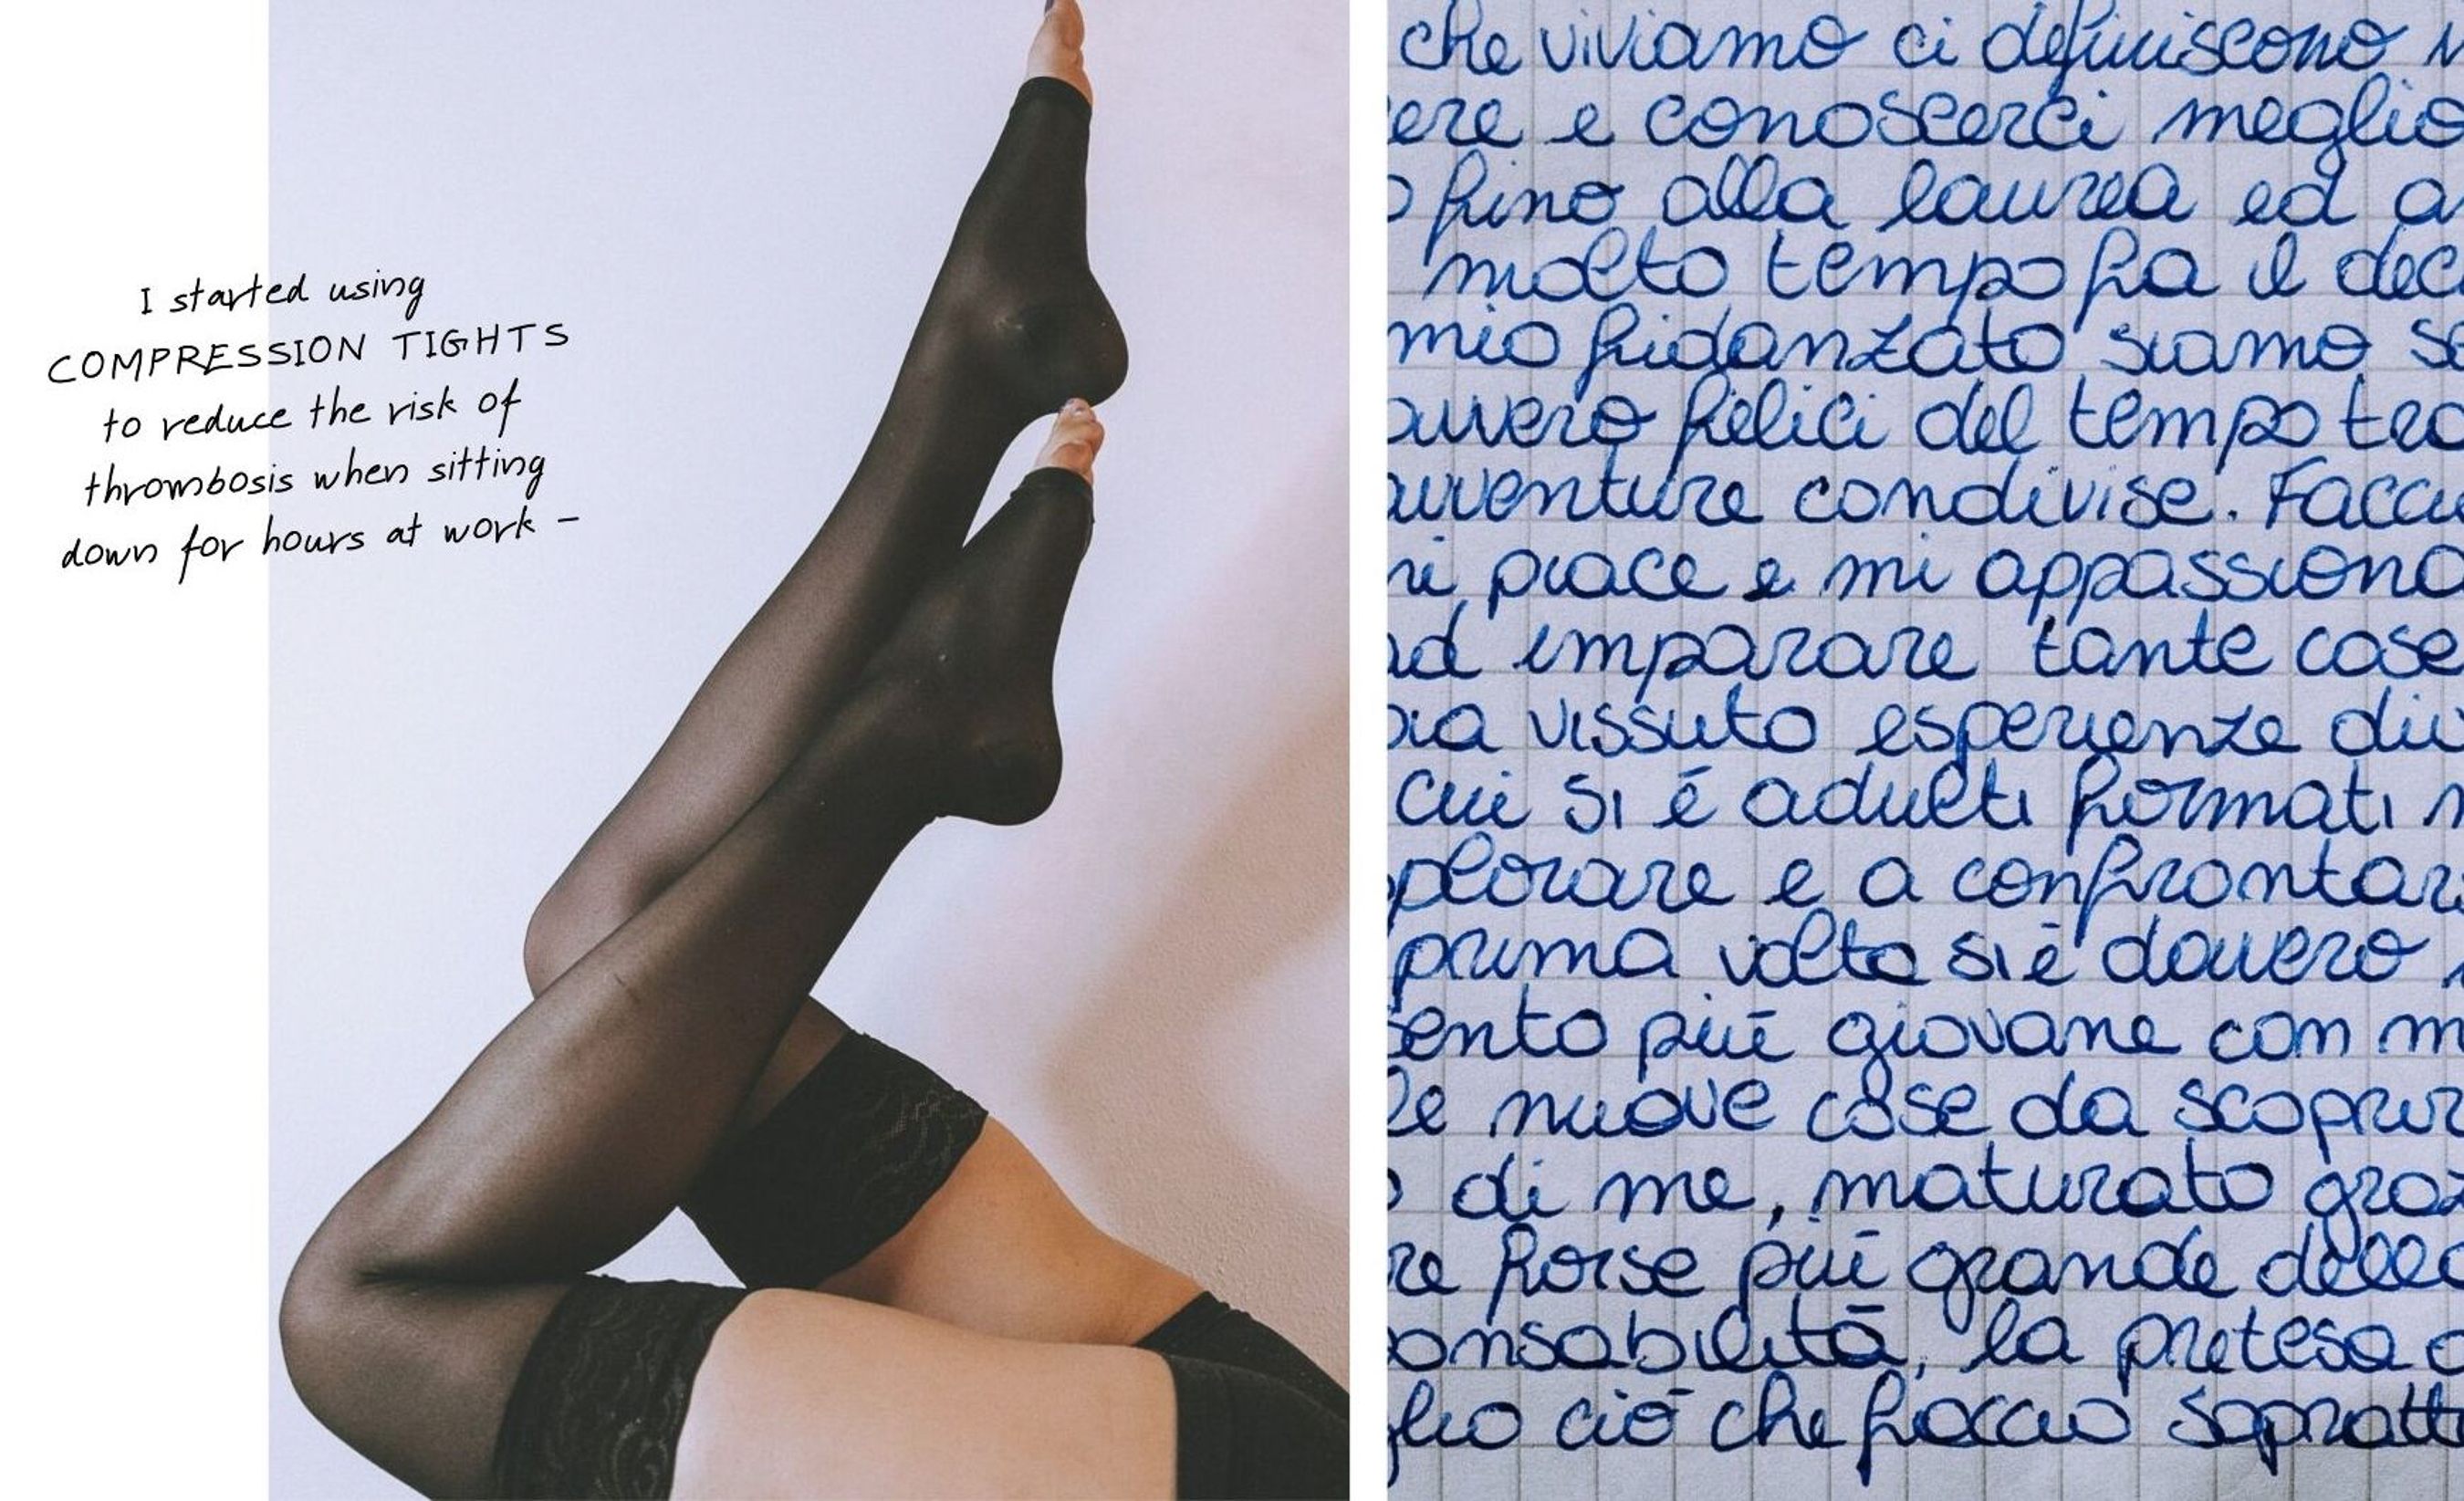 I started using
COMPRESSION TIGHTS
to reduce the risk of
thrombosis when sitting
down for hours at work –
che viviamo ci definiscono
ere e conoscerci meglio
fino alla laurea ed
molto tempo fa il dec
mio fidanzato siamo se
avvero felici del tempo tra
avventure condivise. Facci
ni piace e mi appassiona
ad imparare tante cose
bia vissuto esperienze div
cui si è adulti formati
plorare e a confrontar
prima volta si è davvero
sento più giovane con m
le nuove cose da scoprir
di me, maturato graz
re forse più grande della
onsabilità, la pretesa
glio ciò che faccio sopratt